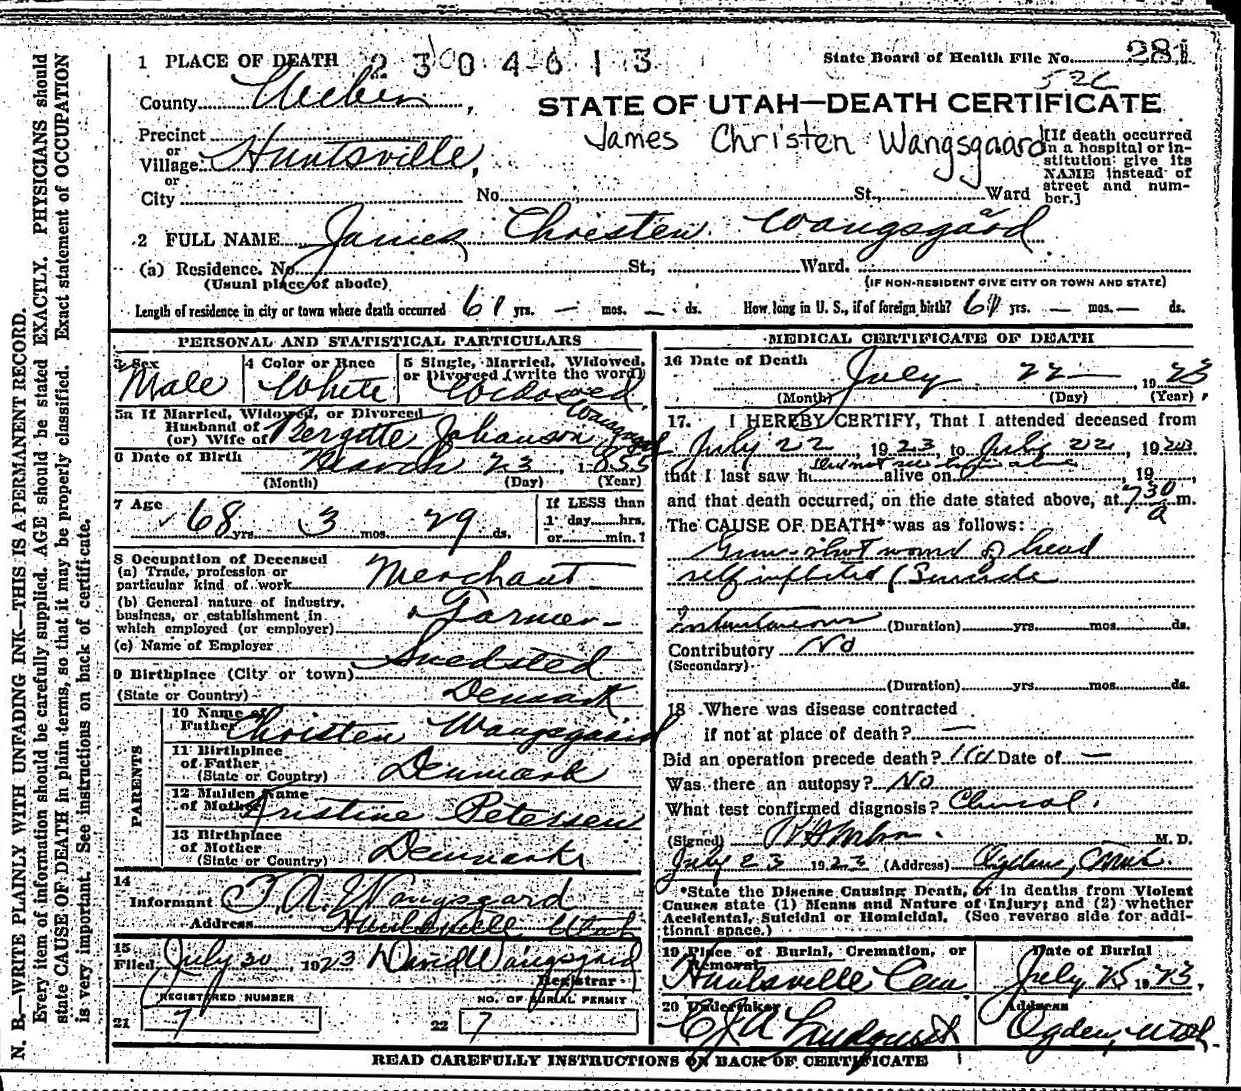 N. B.—WRITE PLAINLY WITH UNFADING INK—THIS IS A PERMANENT RECORD.
Every item of information should be carefully supplied. AGE should be stated EXACTLY. PHYSICIANS should
state CAUSE OF DEATH in plain terms, so that it may be properly classified. Exact statement of OCCUPATION
is very important. See instructions on back of certificate.
1 PLACE OF DEATH 2304613 State Board of Health File No. 281
526
County Weber,
STATE OF UTAH—DEATH CERTIFICATE
James Christen Wangsgaard
Precinct
or
Village Huntsville,
or
City No. St., Ward
[If death occurred
in a hospital or in-
stitution give its
NAME instead of
street and num-
ber.]
2 FULL NAME James Christen Wangsgard
(a) Residence. No. St., Ward.
(Usual place of abode) (IF NON-RESIDENT GIVE CITY OR TOWN AND STATE)
Length of residence in city or town where death occurred 61 yrs. — mos. — ds. How long in U. S., if of foreign birth? 61 yrs. — mos. — ds.
PERSONAL AND STATISTICAL PARTICULARS
3 Sex
Male
4 Color or Race
White
5 Single, Married, Widowed,
or Divorced (write the word)
Widowed
5a If Married, Widowed, or Divorced
Husband of
(or) Wife of Bergitte Johanson Wangsgard
6 Date of Birth March 23, 1855
(Month) (Day) (Year)
7 Age
68 yrs. 3 mos. 29 ds.
If LESS than
1 day hrs.
or min.?
8 Occupation of Deceased
(a) Trade, profession or
particular kind of work Merchant
(b) General nature of industry,
business, or establishment in
which employed (or employer) Farmer
(c) Name of Employer
9 Birthplace (City or town) Snedsted
(State or Country) Denmark
PARENTS
10 Name of
Father Christen Wangsgaard
11 Birthplace
of Father
(State or Country) Denmark
12 Maiden Name
of Mother Kristine Petersen
13 Birthplace
of Mother
(State or Country) Denmark
14
Informant F. A. Wangsgard
Address Huntsville Utah
15
Filed July 30, 1923 David Wangsgard
Registrar
REGISTERED NUMBER NO. OF BURIAL PERMIT
21 7 22 7
MEDICAL CERTIFICATE OF DEATH
16 Date of Death
July 22, 1923
(Month) (Day) (Year)
17. I HEREBY CERTIFY, That I attended deceased from
July 22, 1923, to July 22, 1923
that I last saw h alive on 19 ,
Did not see before alive
and that death occurred, on the date stated above, at 730 a m.
The CAUSE OF DEATH* was as follows:
Gun-shot wound of head
self inflicted (Suicide
Instantaneous (Duration) yrs. mos. ds.
Contributory No
(Secondary)
(Duration) yrs. mos. ds.
18 Where was disease contracted
if not at place of death? —
Did an operation precede death? No Date of —
Was there an autopsy? No
What test confirmed diagnosis? Clinical.
(Signed) M. D.
July 23 1923 (Address) Ogden, Utah.
*State the Disease Causing Death, or in deaths from Violent
Causes state (1) Means and Nature of Injury; and (2) whether
Accidental, Suicidal or Homicidal. (See reverse side for addi-
tional space.)
19 Place of Burial, Cremation, or
Removal
Huntsville Cem
Date of Burial
July 25 1923,
20 Undertaker
Lindquist
Address
Ogden, Utah.
READ CAREFULLY INSTRUCTIONS ON BACK OF CERTIFICATE